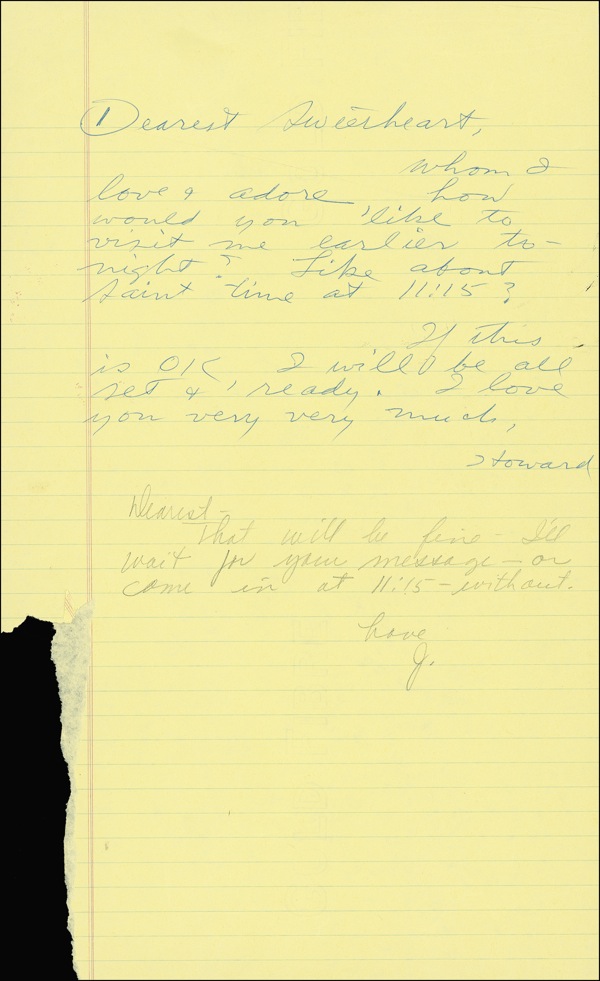 1 Dearest Sweetheart,
whom I
love & adore how
would you like to
visit me earlier to-
night? Like about
saint time at 11:15?
If this
is OK I will be all
set & ready. I love
you very very much,
Howard
Dearest -
That will be fine - I'll
wait for your message - or
come in at 11:15 - without.
Love
J.